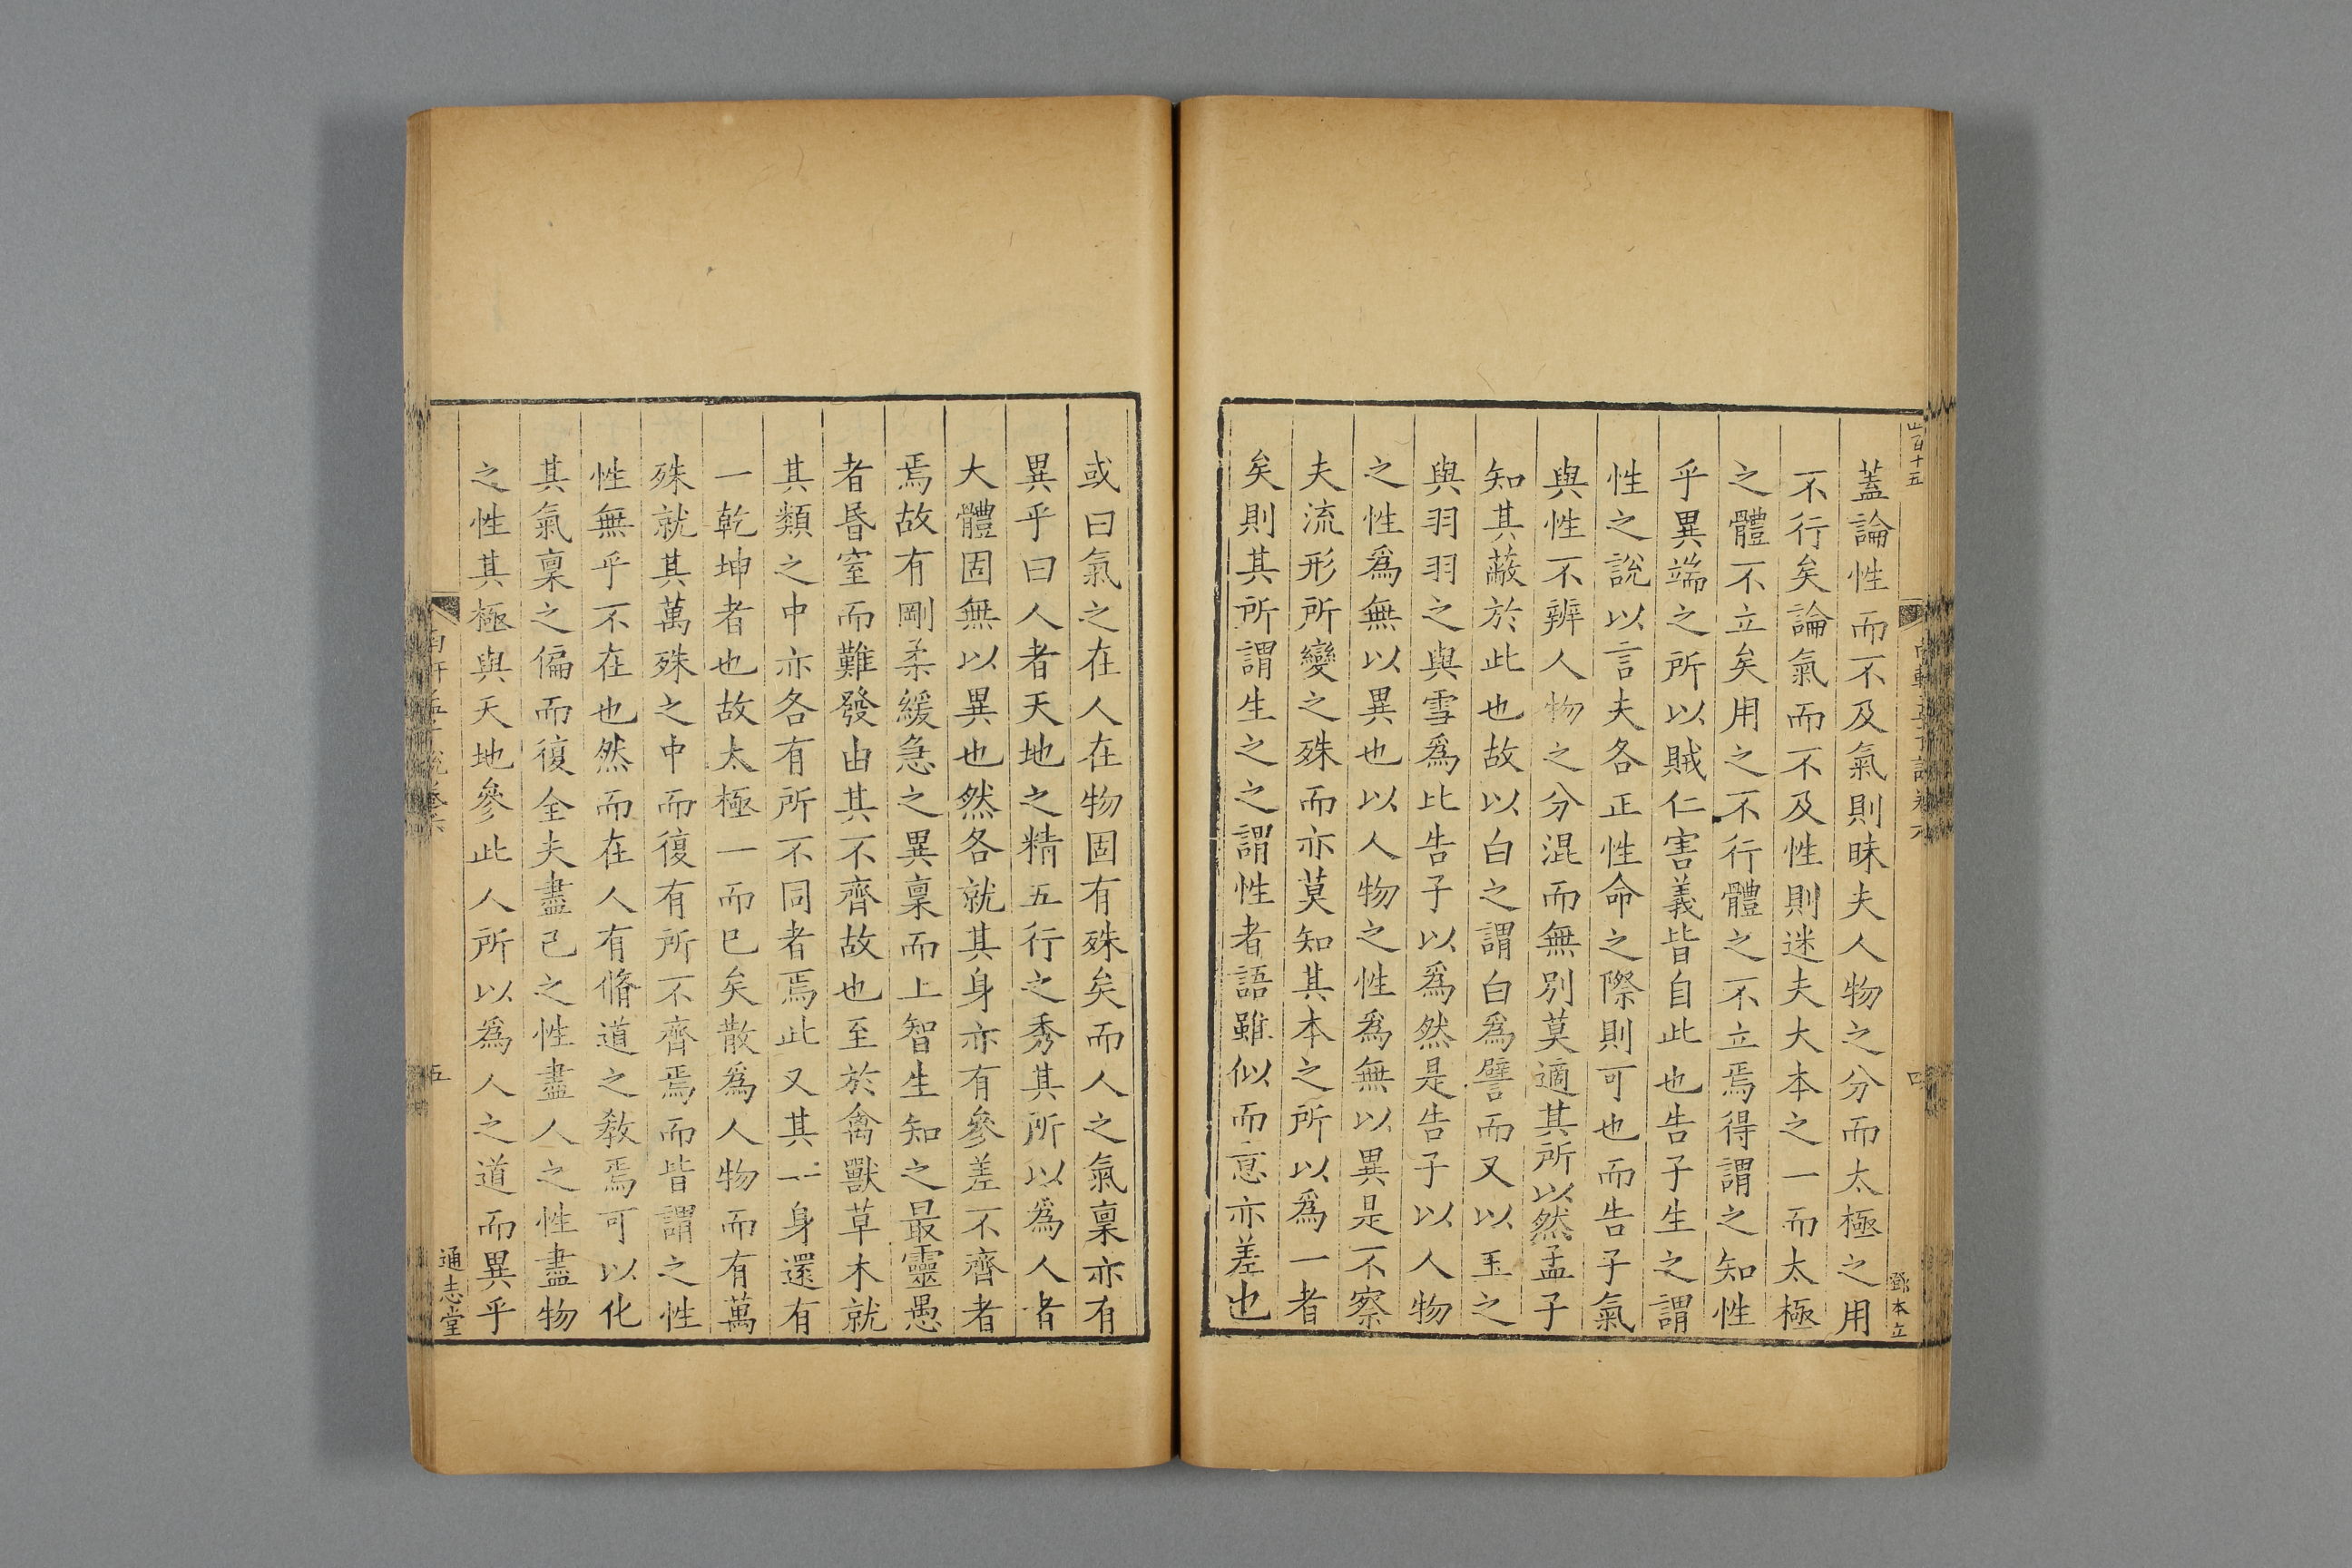 蓋論性而不及氣則昧夫人物之分而太極之用
不行矣論氣而不及性則迷夫大本之一而太極
之體不立矣用之不行體之不立焉得謂之知性
乎異端之所以賊仁害義皆自此也告子生之謂
性之說以言夫各正性命之際則可也而告子氣
與性不辨人物之分混而無別莫適其所以然孟子
知其蔽於此也故以白之謂白爲譬而又以玉之
與羽羽之與雪爲比告子以爲然是告子以人物
之性爲無以異也以人物之性爲無以異是不察
夫流形所變之殊而亦莫知其本之所以爲一者
矣則其所謂生之之謂性者語雖似而意亦差也
鄧本立
或曰氣之在人在物固有殊矣而人之氣稟亦有
異乎曰人者天地之精五行之秀其所以爲人者
大體固無以異也然各就其身亦有參差不齊者
焉故有剛柔緩急之異稟而上智生知之最靈愚
者昏窒而難發由其不齊故也至於禽獸草木就
其類之中亦各有所不同者焉此又其一身還有
一乾坤者也故太極一而已矣散爲人物而有萬
殊就其萬殊之中而復有所不齊焉而皆謂之性
性無乎不在也然而在人有脩道之教焉可以化
其氣稟之偏而復全夫盡己之性盡人之性盡物
之性其極與天地參此人所以爲人之道而異乎
五
通志堂